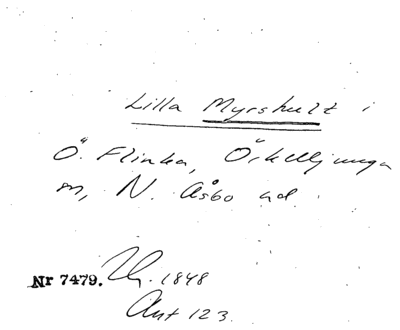 Lilla Myrshult i
Ö. Flinka, Örkelljunga
sn, N. Åsbo hd.
Nr 7479. 1848
Ant 123.